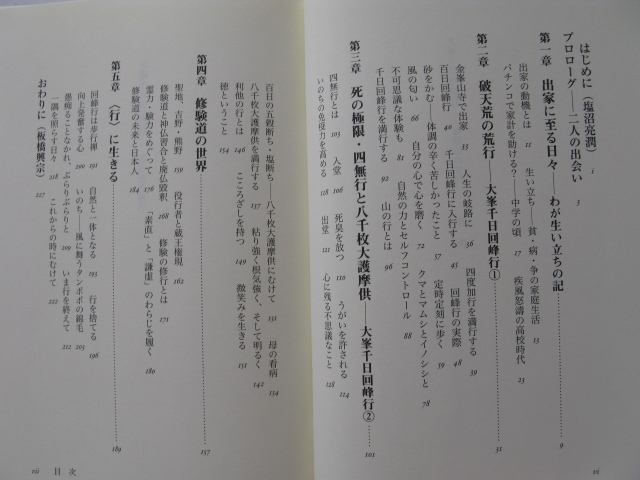 はじめに(塩沼亮潤) i
プロローグ——二人の出会い 3
第一章 出家に至る日々——わが生い立ちの記 9
出家の動機とは 11 生い立ち——貧・病・争の家庭生活 13
パチンコで家計を助ける?——中学の頃 17 疾風怒濤の高校時代 23
第二章 破天荒の荒行——大峯千日回峰行① 31
金峯山寺で出家 33 人生の岐路に 36 四度加行を満行する 39
百日回峰行 40 千日回峰行に入行する 43 回峰行の実際 48
砂をかむ——体調の辛く苦しかったこと 57 定時定刻に歩く 59
風の匂い 66 自分の心で心を磨く 72 クマとマムシとイノシシと 78
不可思議な体験も 81 自然の力とセルフコントロール 88
千日回峰行を満行する 92 山の行とは 96
第三章 死の極限・四無行と八千枚大護摩供——大峯千日回峰行② 101
四無行とは 103 入堂 106 死臭を放つ 110 うがいを許される 114
いのちの免疫力を高める 118 出堂 121 心に残る不思議なこと 128
vi
百日の五穀断ち・塩断ち——八千枚大護摩供にむけて 131 母の看病 134
八千枚大護摩供を満行する 137 粘り強く根気強く、そして明るく 142
利他の行とは 146 こころざしを持つ 149 微笑みを生きる 151
徳ということ 154
第四章 修験道の世界 157
聖地、吉野・熊野 159 役行者と蔵王権現 162
修験道と神仏習合と廃仏毀釈 168 修験の修行とは 171
霊力・験力をめぐって 176 「素直」と「謙虚」のわらじを履く 180
修験道の未来と日本人 184
第五章 〈行〉に生きる 189
回峰行は歩行禅 191 自然と一体となる 193 行を捨てる 196
向上発奮する心 200 いのち——風に舞うタンポポの綿毛 203
愚痴ることなかれ、ぶらりぶらりと 209 いま行を終えて 212
一隅を照らす日々 218 これからの時にむけて 222
おわりに(板橋興宗) 227
vii 目次